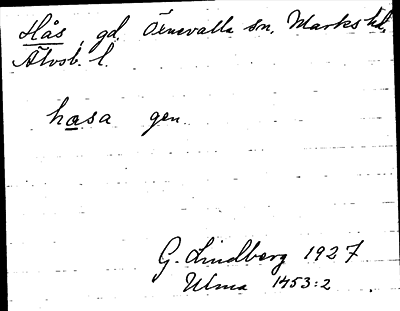 Hås, gd. Örnevalla sn, Marks hd,
Älvsb. l.
hasa gen
G. Lindberg 1927
Ulma 1453:2